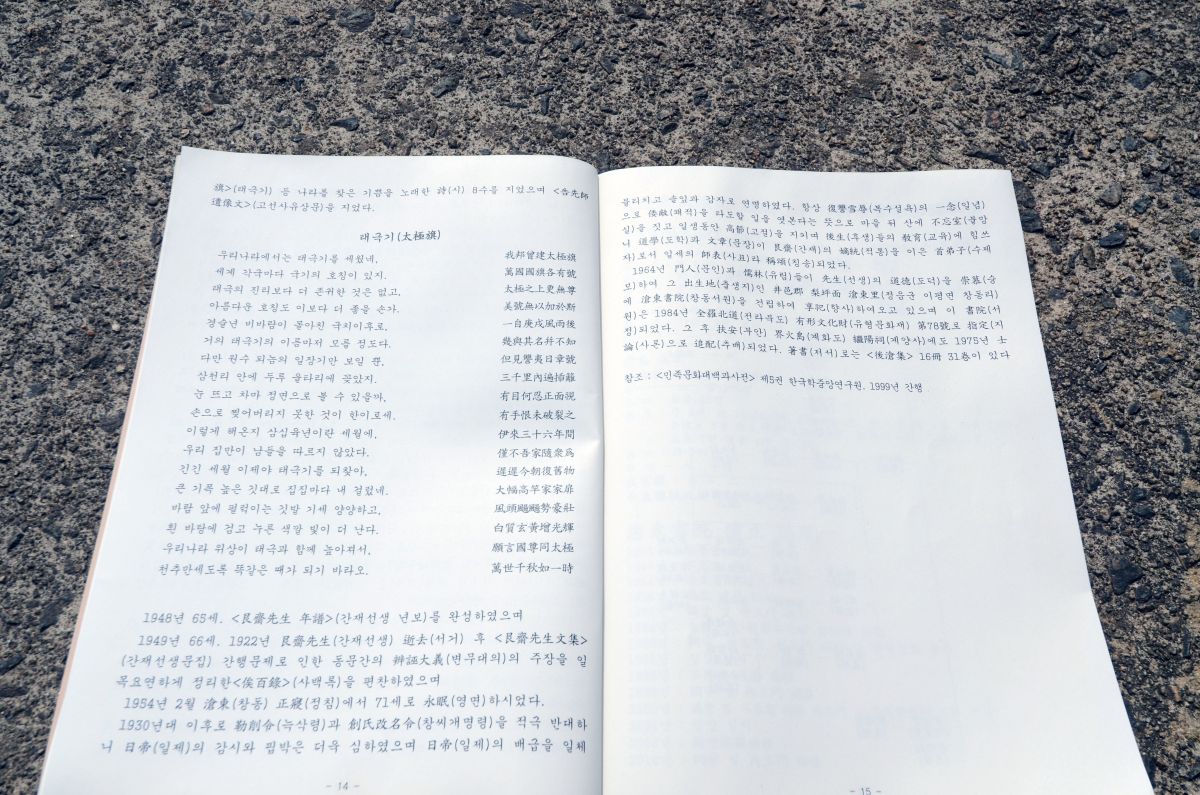 旗>(태극기) 등 나라를 찾은 기쁨을 노래한 詩(시) 8수를 지었으며 <告先師
遺像文>(고선사유상문)을 지었다.
태극기(太極旗)
우리나라에서는 태극기를 세웠네. 我邦曾建太極旗
세계 각국마다 국기의 호칭이 있지. 萬國國旗各有號
태극의 진리보다 더 존귀한 것은 없고, 太極之上更無尊
아름다운 호칭도 이보다 더 좋을 손가. 美號無以加於斯
경술년 비바람이 몰아친 국치이후로, 一自庚戌風雨後
거의 태극기의 이름마저 모를 정도다. 幾與其名幷不知
다만 원수 되놈의 일장기만 보일 뿐, 但見讐夷日章號
삼천리 안에 두루 울타리에 꽂았지. 三千里內遍揷籬
눈 뜨고 차마 정면으로 볼 수 있을까, 有目何忍正面視
손으로 찢어버리지 못한 것이 한이로세. 有手恨未破裂之
이렇게 해온지 삼십육년이란 세월에, 伊來三十六年間
우리 집만이 남들을 따르지 않았다. 僅不吾家隨衆爲
긴긴 세월 이제야 태극기를 되찾아, 遲遲今朝復舊物
큰 기폭 높은 깃대로 집집마다 내 걸렸네. 大幅高竿家家扉
바람 앞에 펄럭이는 깃발 기세 양양하고, 風頭飈飈勢豪壯
흰 바탕에 검고 누른 색깔 빛이 더 난다. 白質玄黃增光輝
우리나라 위상이 태극과 함께 높아져서, 願言國尊同太極
천추만세도록 똑같은 때가 되기 바라오. 萬世千秋如一時
1948년 65세. <艮齋先生 年譜>(간재선생 년보)를 완성하였으며
1949년 66세. 1922년 艮齋先生(간재선생) 逝去(서거) 후 <艮齋先生文集>
(간재선생문집) 간행문제로 인한 동문간의 辨誣大義(변무대의)의 주장을 일
목요연하게 정리한<俟百錄>(사백록)을 편찬하였으며
1954년 2월 滄東(창동) 正寢(정침)에서 71세로 永眠(영면)하시었다.
1930년대 이후로 勒削令(늑삭령)과 創氏改名令(창씨개명령)을 적극 반대하
니 日帝(일제)의 감시와 핍박은 더욱 심하였으며 日帝(일제)의 배급을 일체
- 14 -
물리치고 솔잎과 감자로 연명하였다. 항상 復讐雪辱(복수설욕)의 一念(일념)
으로 倭敵(왜적)을 타도할 일을 엿본다는 뜻으로 마을 뒤 산에 不忘室(불망
실)을 짓고 일생동안 高節(고절)을 지키며 後生(후생)들의 敎育(교육)에 힘쓰
니 道學(도학)과 文章(문장)이 艮齋(간재)의 嫡統(적통)을 이은 首弟子(수제
자)로서 일세의 師表(사표)라 稱頌(칭송)되었다.
1964년 門人(문인)과 儒林(유림)들이 先生(선생)의 道德(도덕)을 崇慕(숭
모)하여 그 出生地(출생지)인 井邑郡 梨坪面 滄東里(정읍군 이평면 창동리)
에 滄東書院(창동서원)을 건립하여 享祀(향사)하여오고 있으며 이 書院(서
원)은 1984년 全羅北道(전라북도) 有形文化財(유형문화재) 第78號로 指定(지
정)되었다. 그 후 扶安(부안) 界火島(계화도) 繼陽祠(계양사)에도 1975년 士
論(사론)으로 追配(추배)되었다. 著書(저서)로는 <後滄集> 16冊 31卷이 있다
참조 : <민족문화대백과사전> 제5권 한국학중앙연구원, 1999년 간행
- 15 -